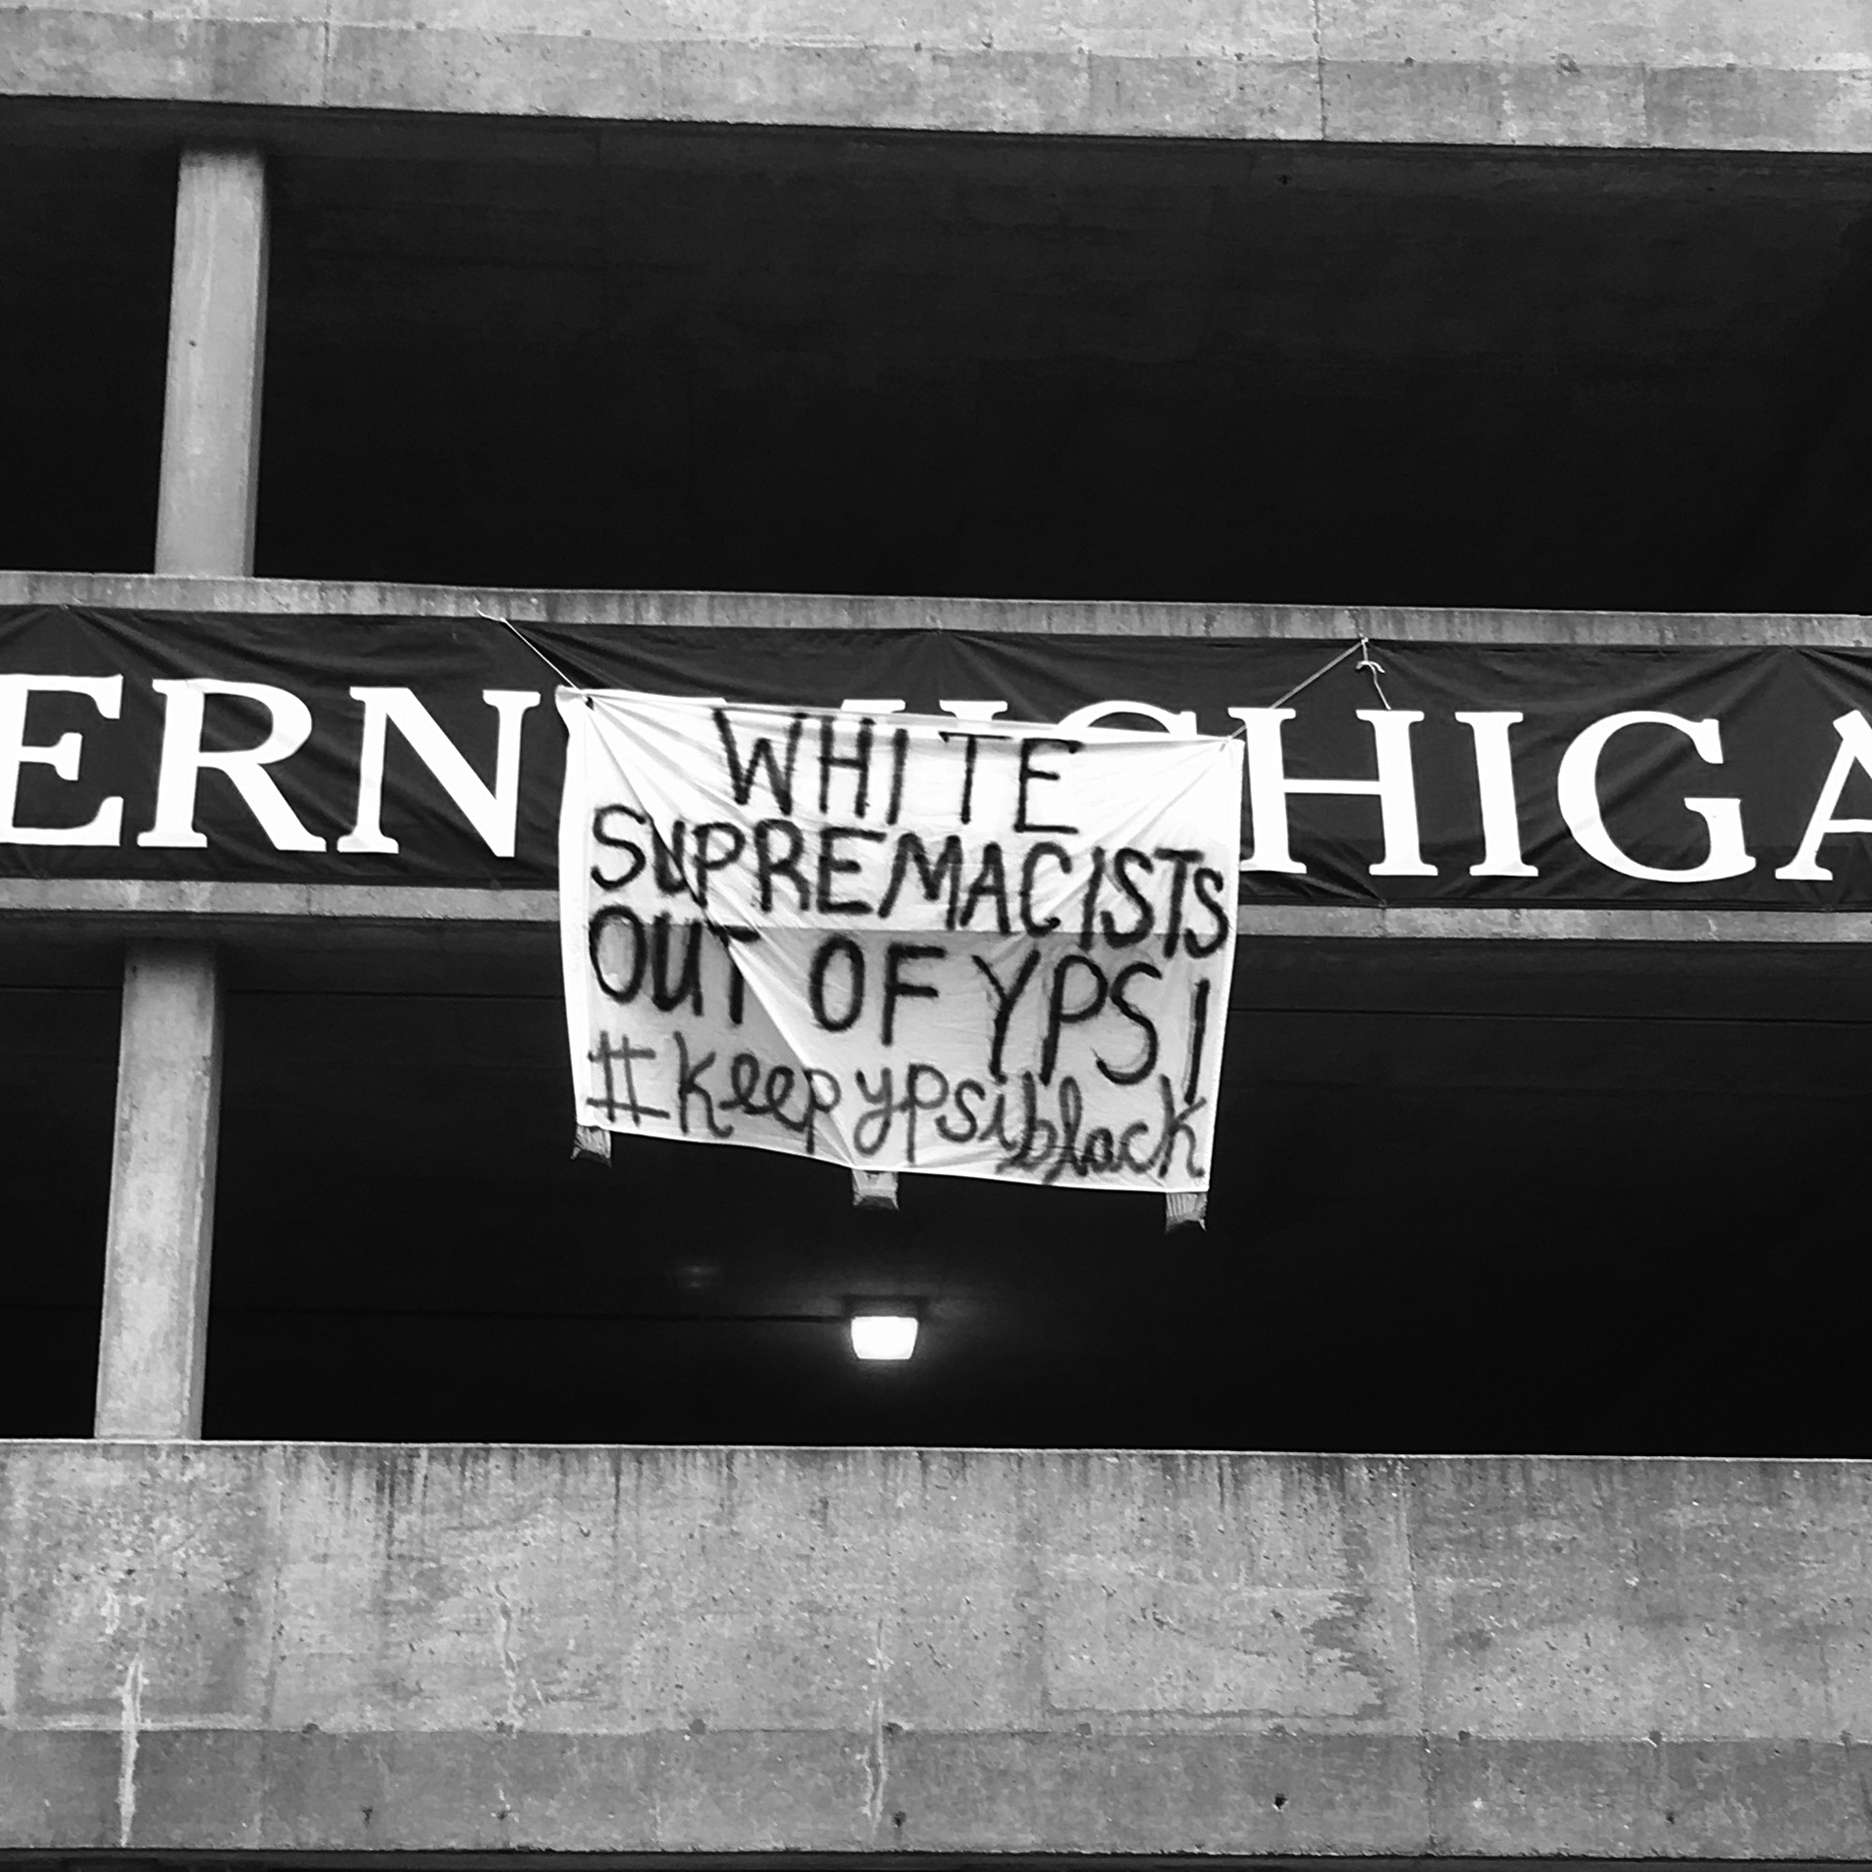 ERN MICHIGA
WHITE
SUPREMACISTS
OUT OF YPSI
#keepypsiblack